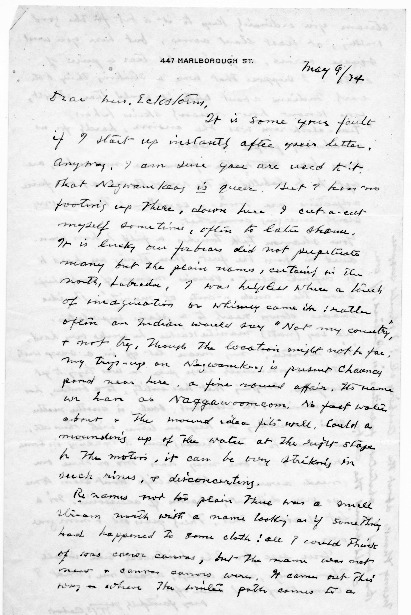 447 MARLBOROUGH ST.
May 9/34
Dear Mrs. Eckstorm,
It is some your fault
if I start up instantly after your letter.
Anyway, I am sure you are used to it.
That Negwamkeag is queer. But I have no
footing up there, down here I cut-a-cut
myself sometimes, often to later shame.
It is lucky our fabears did not perpetuate
many but the plain names, certainly in the
north, Labrador, I was helpless where a touch
of imagination or whimsy came in; rather
often an Indian would say "Not my country,"
& not try, though the location might not be far.
My trip-up on Negwamkeag is present Chauncy
pond near here, a fine round affair. Its name
we have as Naggawoomcom. No fast water
about & the mound idea fits well. Could a
mounding up of the water at the right stage
be the motion, it can be very striking in
such rivers, & disconcerting.
Re names not too plain there was a small
stream north with a name looking as if something
had happened to some cloth! all I could think
of was canoe canvas, but the name was not
new & canvas canoes were. It came out this
way where the winter path comes to a